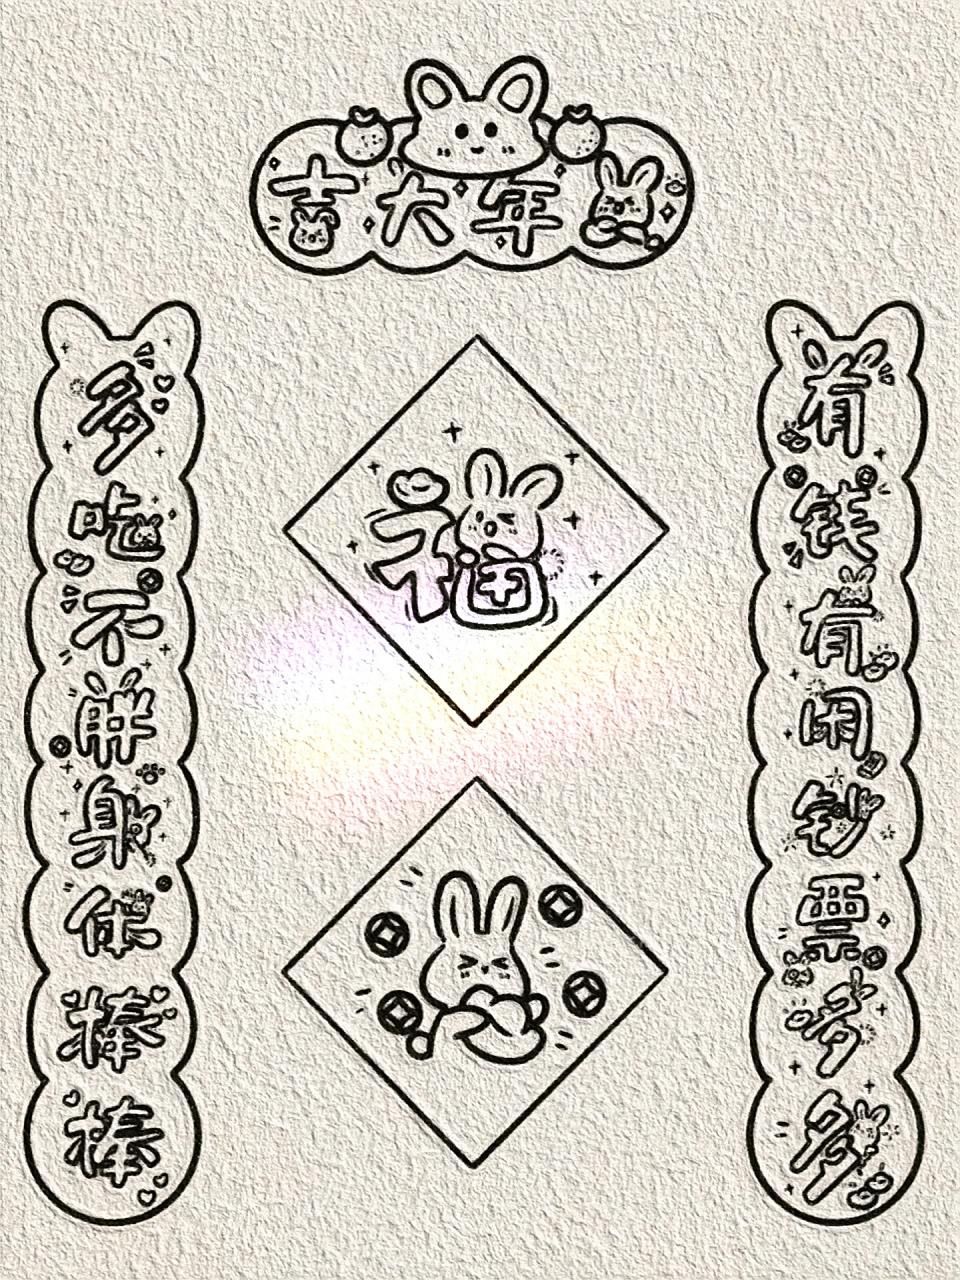 年大吉
有钱有闲钞票多多
多吃不胖身体棒棒
福